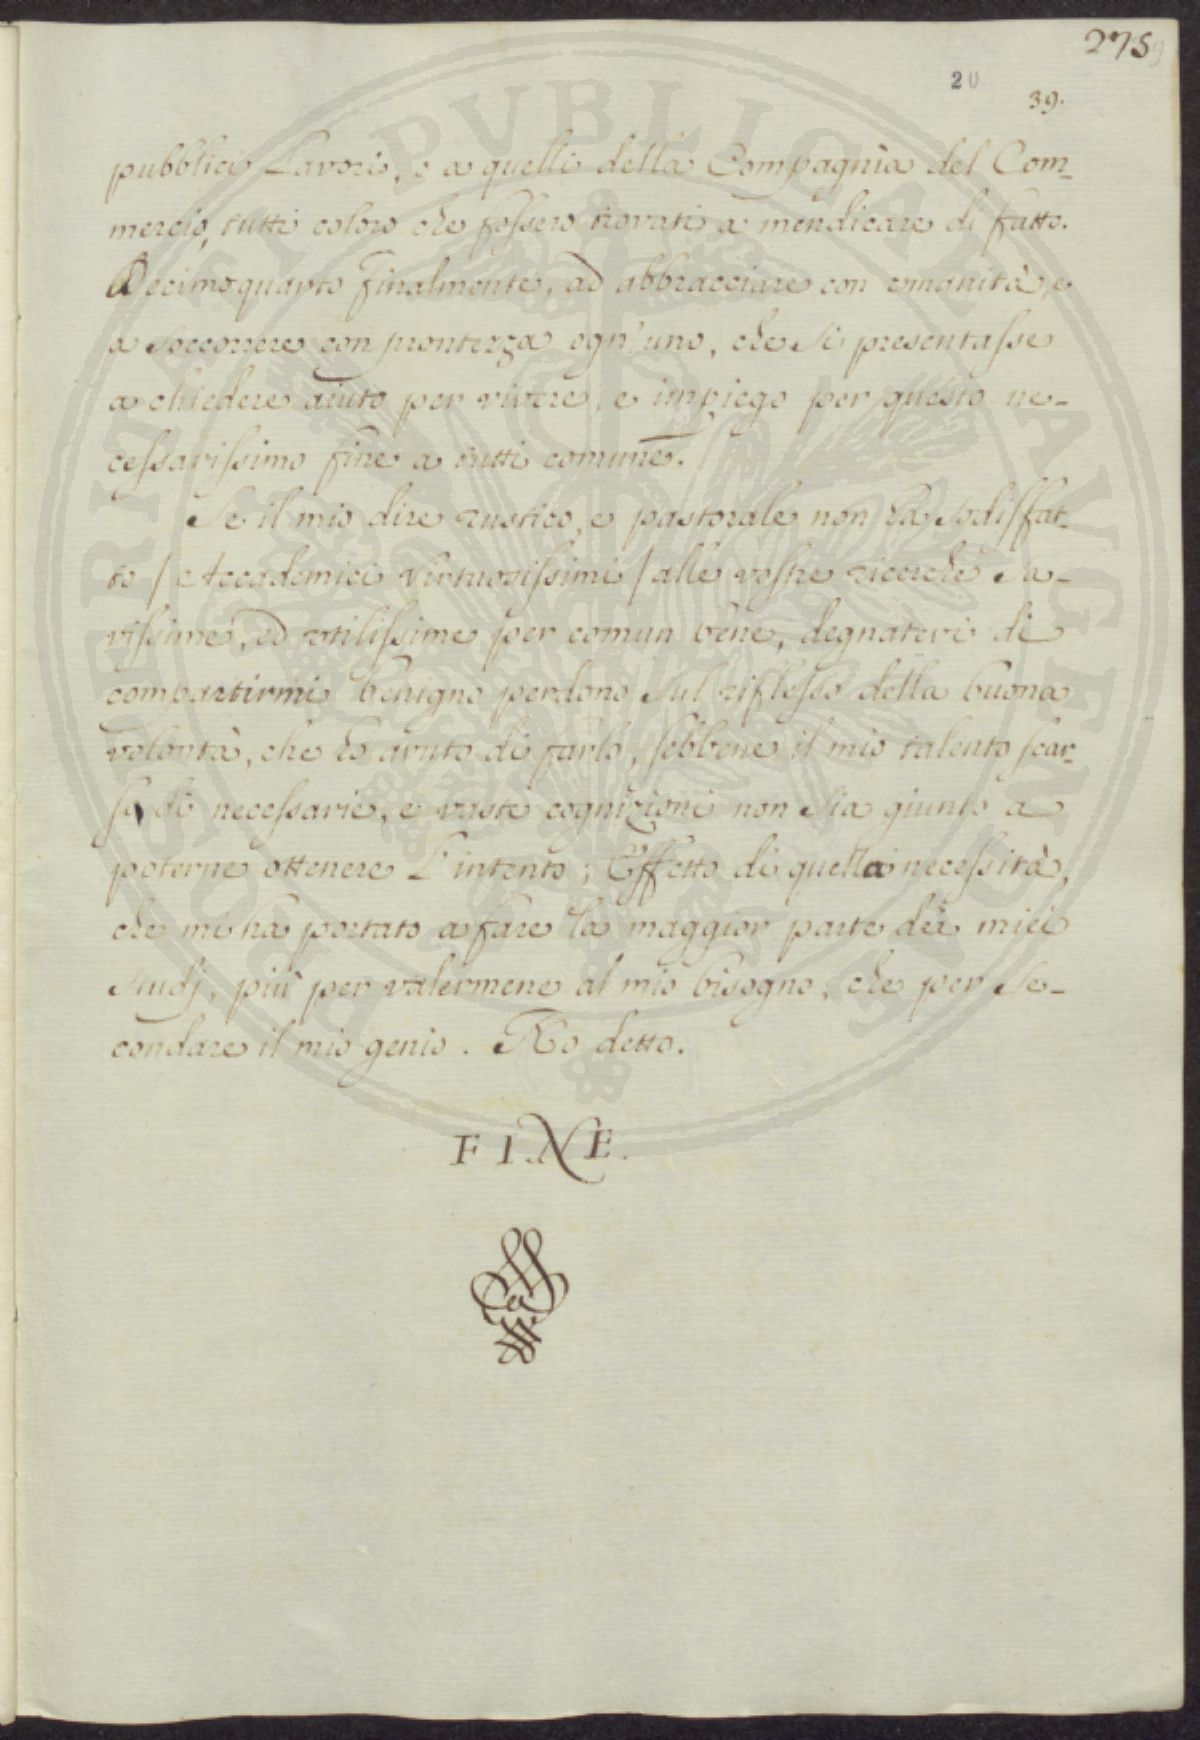 275
20
39.
pubblici Lavori, o a quelli della Compagnia del Com-
mercio, tutti coloro che fossero trovati a mendicare di fatto.
Decimoquarto finalmente, ad abbracciare con umanità, e
a soccorrere con prontezza ogn'uno, che si presentasse
a chiedere aiuto per vivere, e impiego per questo ne-
cessarissimo fine a tutti comune.
Se il mio dire rustico, e pastorale non ha sodisfat-
to / Accademici Virtuosissimi / alle vostre ricerche sa-
vissime, ed utilissime per comun bene, degnatevi di
compartirmi benigno perdono sul riflesso della buona
volontà, che ho avuto di farlo, sebbene il mio talento scar-
so di necessarie, e vaste cognizioni non sia giunto a
poterne ottenere l'intento; Effetto di quella necessità,
che mi ha portato a fare la maggior parte dei miei
studj, più per valermene al mio bisogno, che per se-
condare il mio genio. Ho detto.
FINE.